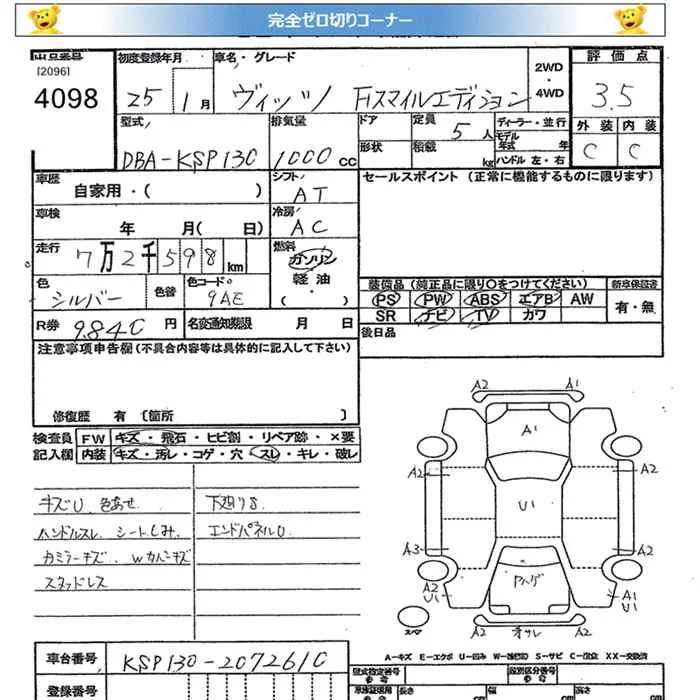 完全ゼロ切りコーナー
出品番号 初度登録年月 車名・グレード 2WD・4WD 評価点
[2096]
4098 25 1月 ヴィッツ Fスマイルエディション 3.5
型式 排気量 ドア 定員 5人 ディーラー・並行 外装 内装
DBA-KSP130 1000cc 形状 積載 kg モデル年式 年 ハンドル 左・右 C C
車歴 自家用・( ) シフト AT セールスポイント(正常に機能するものに限ります)
車検 年 月( 日) 冷房 AC
走行 7万2千598km 燃料 ガソリン
軽油・( )
色 シルバー 色替 色コード 9AE 装備品(純正品に限り○をつけてください) 新車保証書
PS PW ABS エアB AW 有・無
R券 9840円 名変通知期限 月 日 SR ナビ TV カワ
注意事項申告欄(不具合内容等は具体的に記入して下さい) 後日品
修復歴 有 〔箇所 〕
検査員 FW キズ・飛石・ヒビ割・リペア跡・×要
記入欄 内装 キズ・汚レ・コゲ・穴・スレ・キレ・破レ
キズU 色あせ 下廻りS
ハンドルスレ シートしみ エンドパネルU
カミラーキズ Wカバーキズ
スタッドレス
A2 A1
A1
A2 A2
U1
A3 A2
A2 U1 Aハゲ A1 U1
スペア オサレ
A2 A2
A-キズ E-エクボ U-凹み W-(波)(凹) S-サビ C-腐食 XX-交換済
車台番号 KSP130-2072610 型式指定番号 参考 類別区分番号 参考
登録番号 車検証専用 参考 長さ cm 幅 cm 高さ cm